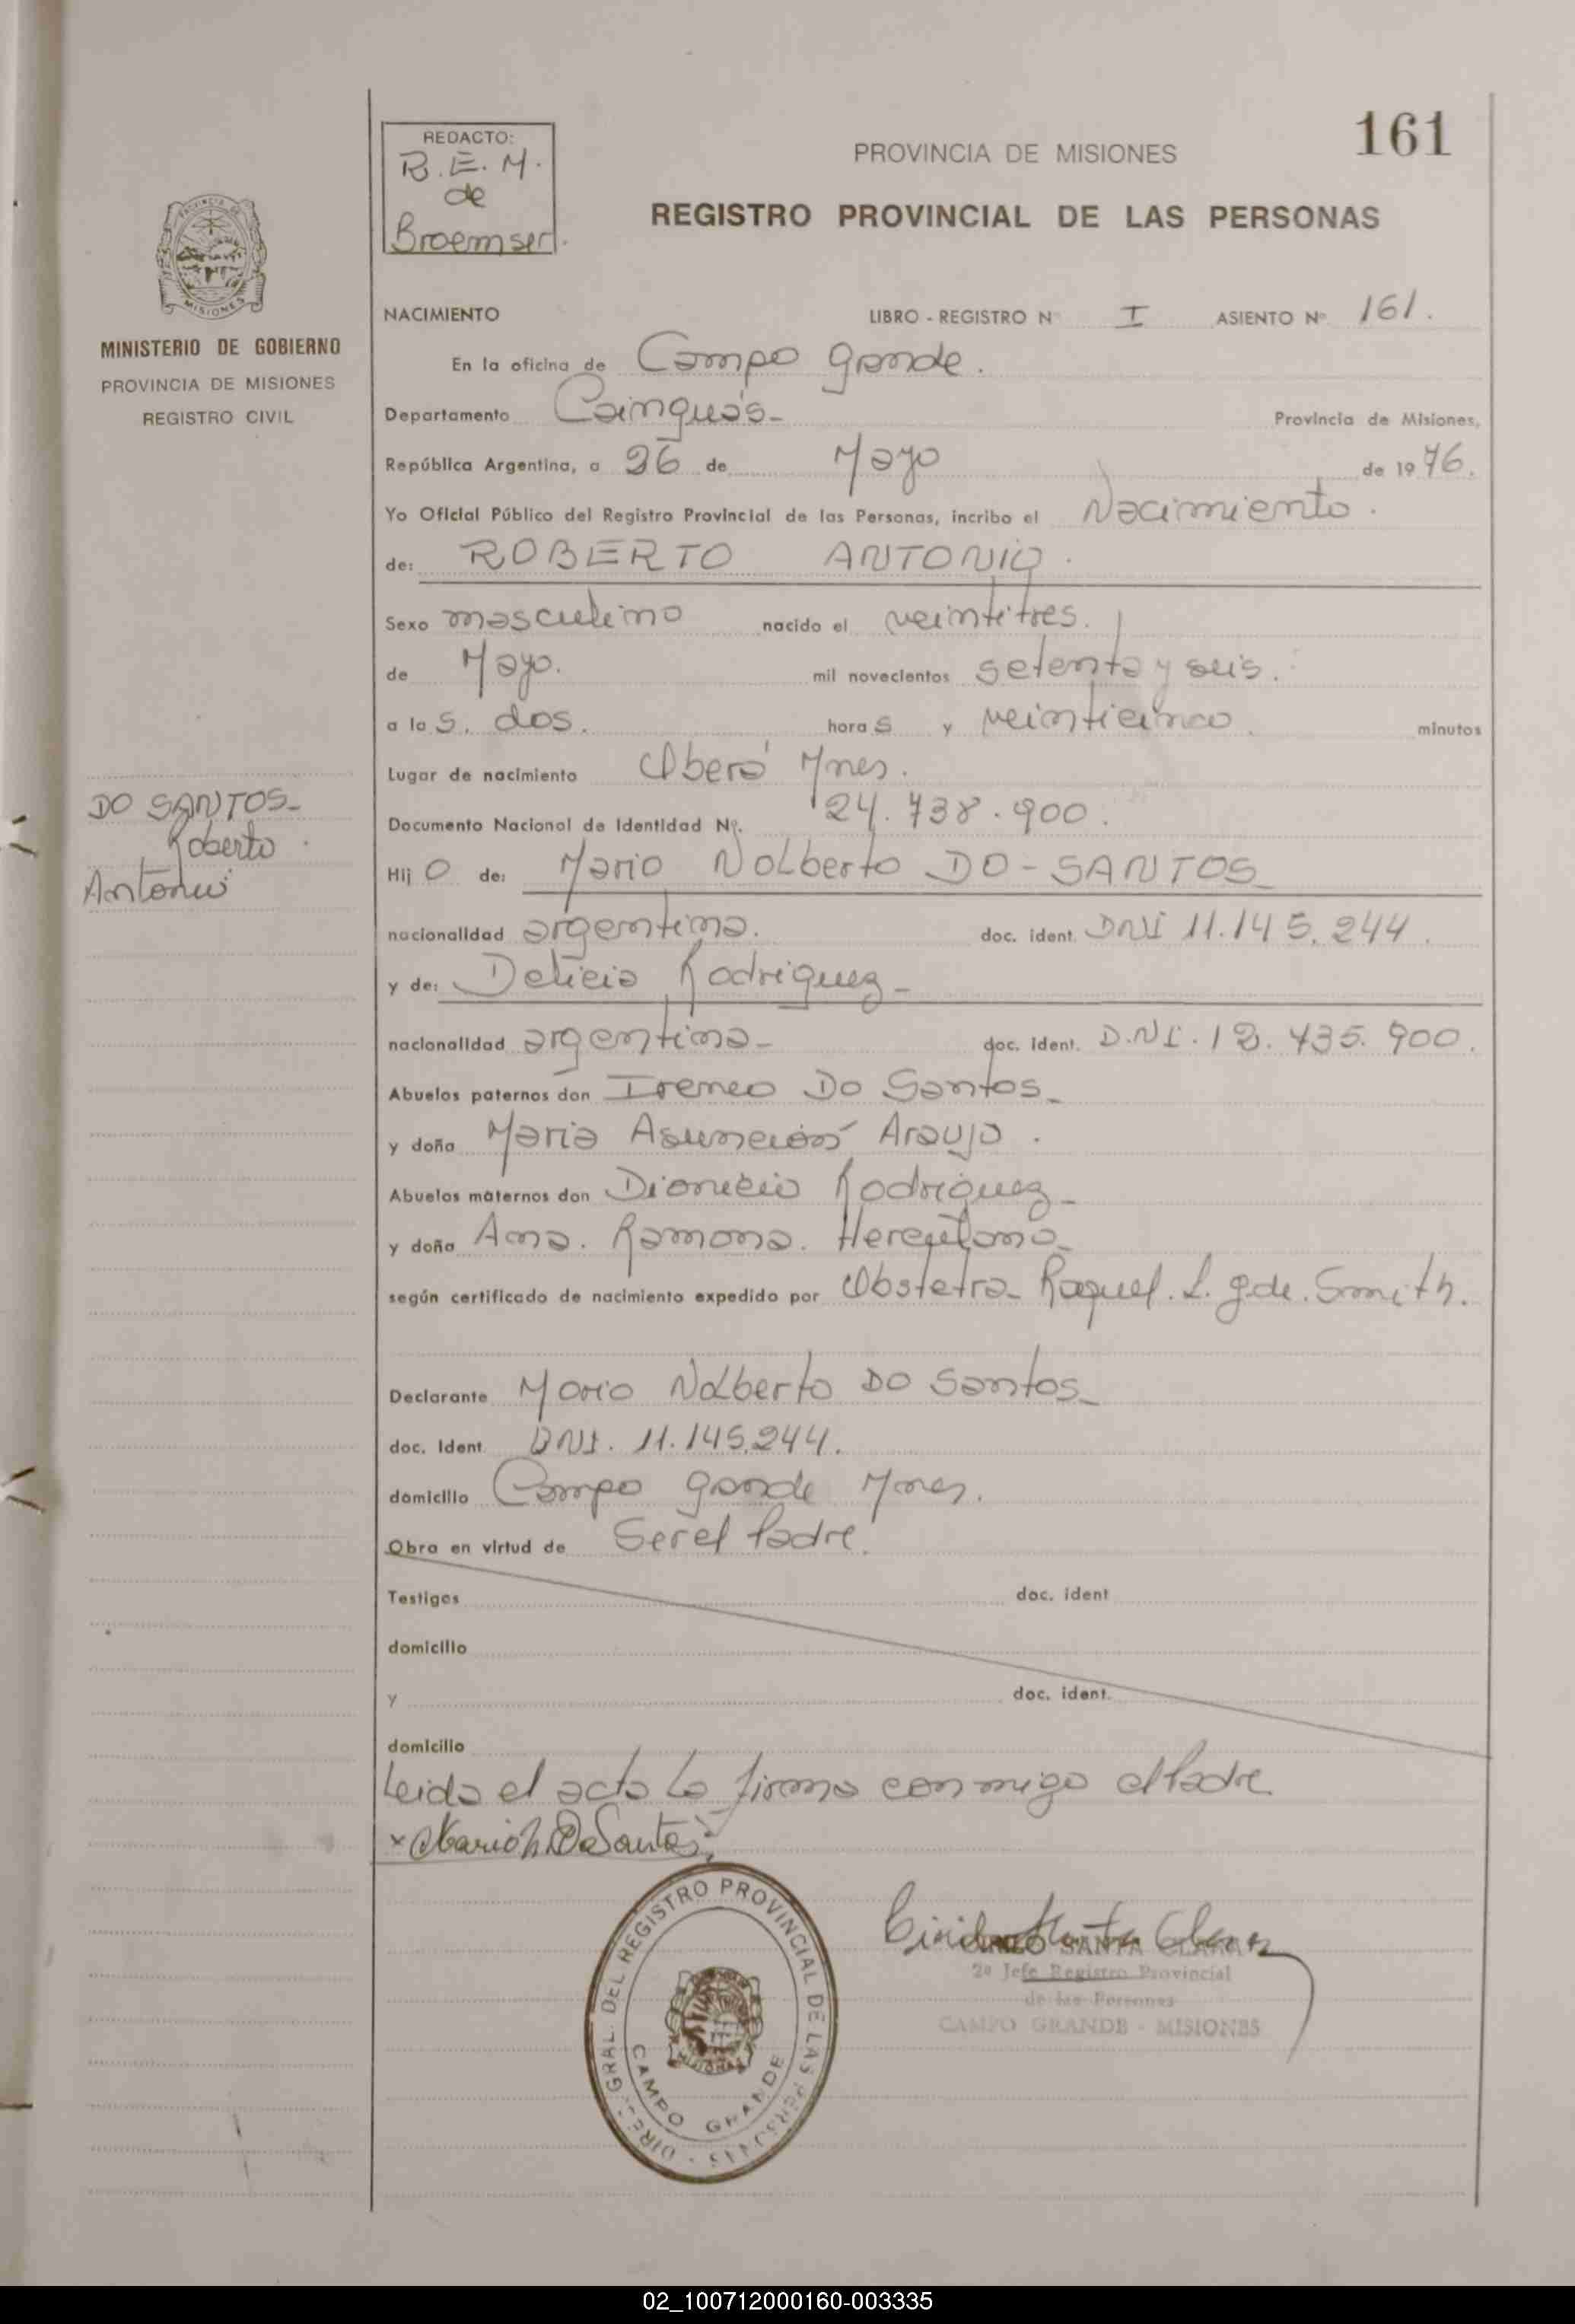 161
REDACTO:
B.E.M.
de
Broemser.
PROVINCIA DE MISIONES
REGISTRO PROVINCIAL DE LAS PERSONAS
PROVINCIA DE
MISIONES
MINISTERIO DE GOBIERNO
PROVINCIA DE MISIONES
REGISTRO CIVIL
NACIMIENTO LIBRO - REGISTRO N I ASIENTO Nº 161.
En la oficina de Campo grande.
Departamento Cainguás- Provincia de Misiones,
República Argentina, a 26 de Mayo de 1976.
Yo Oficial Público del Registro Provincial de las Personas, incribo el Nacimiento.
de: ROBERTO ANTONIO.
Sexo masculino nacido el veintitres.
de Mayo. mil novecientos setenta y seis.
a las. dos. horas y veinticinco. minutos
Lugar de nacimiento Oberá Mnes.
Documento Nacional de Identidad Nº. 24.738.900.
DO SANTOS-
Roberto
Antonio
Hijo de: Mario Nolberto DO-SANTOS
nacionalidad argentina. doc. ident. DNI 11.145.244.
y de: Delicia Rodriguez-
nacionalidad argentina- doc. ident. D.N.I. 12.435.900.
Abuelos paternos don Ireneo Do Santos-
y doña Maria Asunción Araujo.
Abuelos maternos don Dionicio Rodriguez-
y doña Ana. Ramona.
según certificado de nacimiento expedido por Obstetra- Raquel. L. g.de. Smith.
Declarante Mario Nolberto DO Santos-
doc. Ident. DNI. 11.145.244.
domicilio Campo grande Mnes.
Obra en virtud de Ser el Padre.
Testigos doc. ident
domicilio
y doc. ident.
domicilio
Leida el acta La firma conmigo el Padre
x Mario N. Do Santos
DIREC. GRAL. DEL REGISTRO PROVINCIAL DE LAS PERSONAS
CAMPO GRANDE
MISIONES
SANTA
2º Jefe Registro Provincial
de las Personas
CAMPO GRANDE - MISIONES
02_100712000160-003335